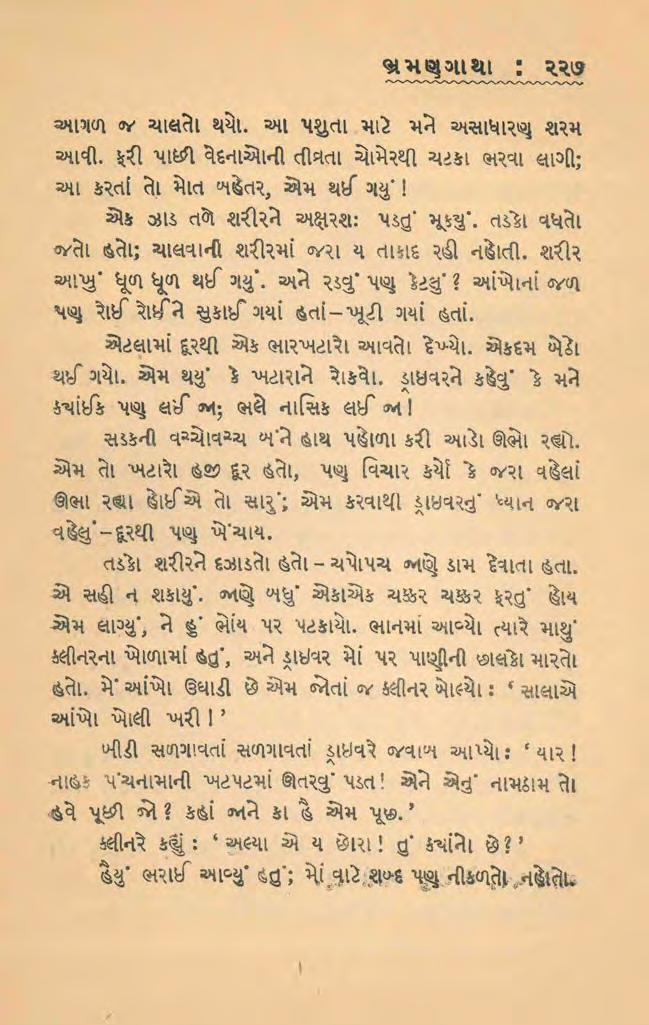 ભ્રમણગાથા : ૨૨૭
આગળ જ ચાલતો થયો. આ પશુતા માટે મને અસાધારણ શરમ
આવી. ફરી પાછી વેદનાઓની તીવ્રતા ચોમેરથી ચટકા ભરવા લાગી;
આ કરતાં તો મોત બહેતર, એમ થઈ ગયું !
એક ઝાડ તળે શરીરને અક્ષરશઃ પડતું મૂક્યું. તડકો વધતો
જતો હતો; ચાલવાની શરીરમાં જરા ય તાકાદ રહી નહોતી. શરીર
આખું ધૂળ ધૂળ થઈ ગયું. અને રડવું પણ કેટલું ? આંખોનાં જળ
પણ રોઈ રોઈને સુકાઈ ગયાં હતાં–ખૂટી ગયાં હતાં.
એટલામાં દૂરથી એક ભારખટારો આવતો દેખ્યો. એકદમ બેઠો
થઈ ગયો. એમ થયું કે ખટારાને રોકવો. ડ્રાઇવરને કહેવું કે મને
ક્યાંઈક પણ લઈ જા; ભલે નાસિક લઈ જા !
સડકની વચ્ચોવચ્ચ બંને હાથ પહોળા કરી આડો ઊભો રહ્યો.
એમ તો ખટારો હજી દૂર હતો, પણ વિચાર કર્યો કે જરા વહેલાં
ઊભા રહ્યા હોઈએ તો સારું; એમ કરવાથી ડ્રાઇવરનું ધ્યાન જરા
વહેલું–દૂરથી પણ ખેંચાય.
તડકો શરીરને દઝાડતો હતો – ચપોપચ જાણે ડામ દેવાતા હતા.
એ સહી ન શકાયું. જાણે બધું એકાએક ચક્કર ચક્કર ફરતું હોય
એમ લાગ્યું, ને હું ભોંય પર પટકાયો. ભાનમાં આવ્યો ત્યારે માથું
ક્લીનરના ખોળામાં હતું, અને ડ્રાઇવર મોં પર પાણીની છાલકો મારતો
હતો. મેં આંખો ઉઘાડી છે એમ જોતાં જ ક્લીનર બોલ્યો : ‘ સાલાએ
આંખો ખોલી ખરી ! ’
બીડી સળગાવતાં સળગાવતાં ડ્રાઇવરે જવાબ આપ્યો : ‘ યાર !
નાહક પંચનામાની ખટપટમાં ઊતરવું પડત ! એને એનું નામઠામ તો
હવે પૂછી જો ? કહાં જાને કા હૈ એમ પૂછ. ’
ક્લીનરે કહ્યું : ‘ અલ્યા એ ય છોરા ! તું ક્યાંનો છે ? ’
હૈયું ભરાઈ આવ્યું હતું; મોં વાટે શબ્દ પણ નીકળતો નહોતો.